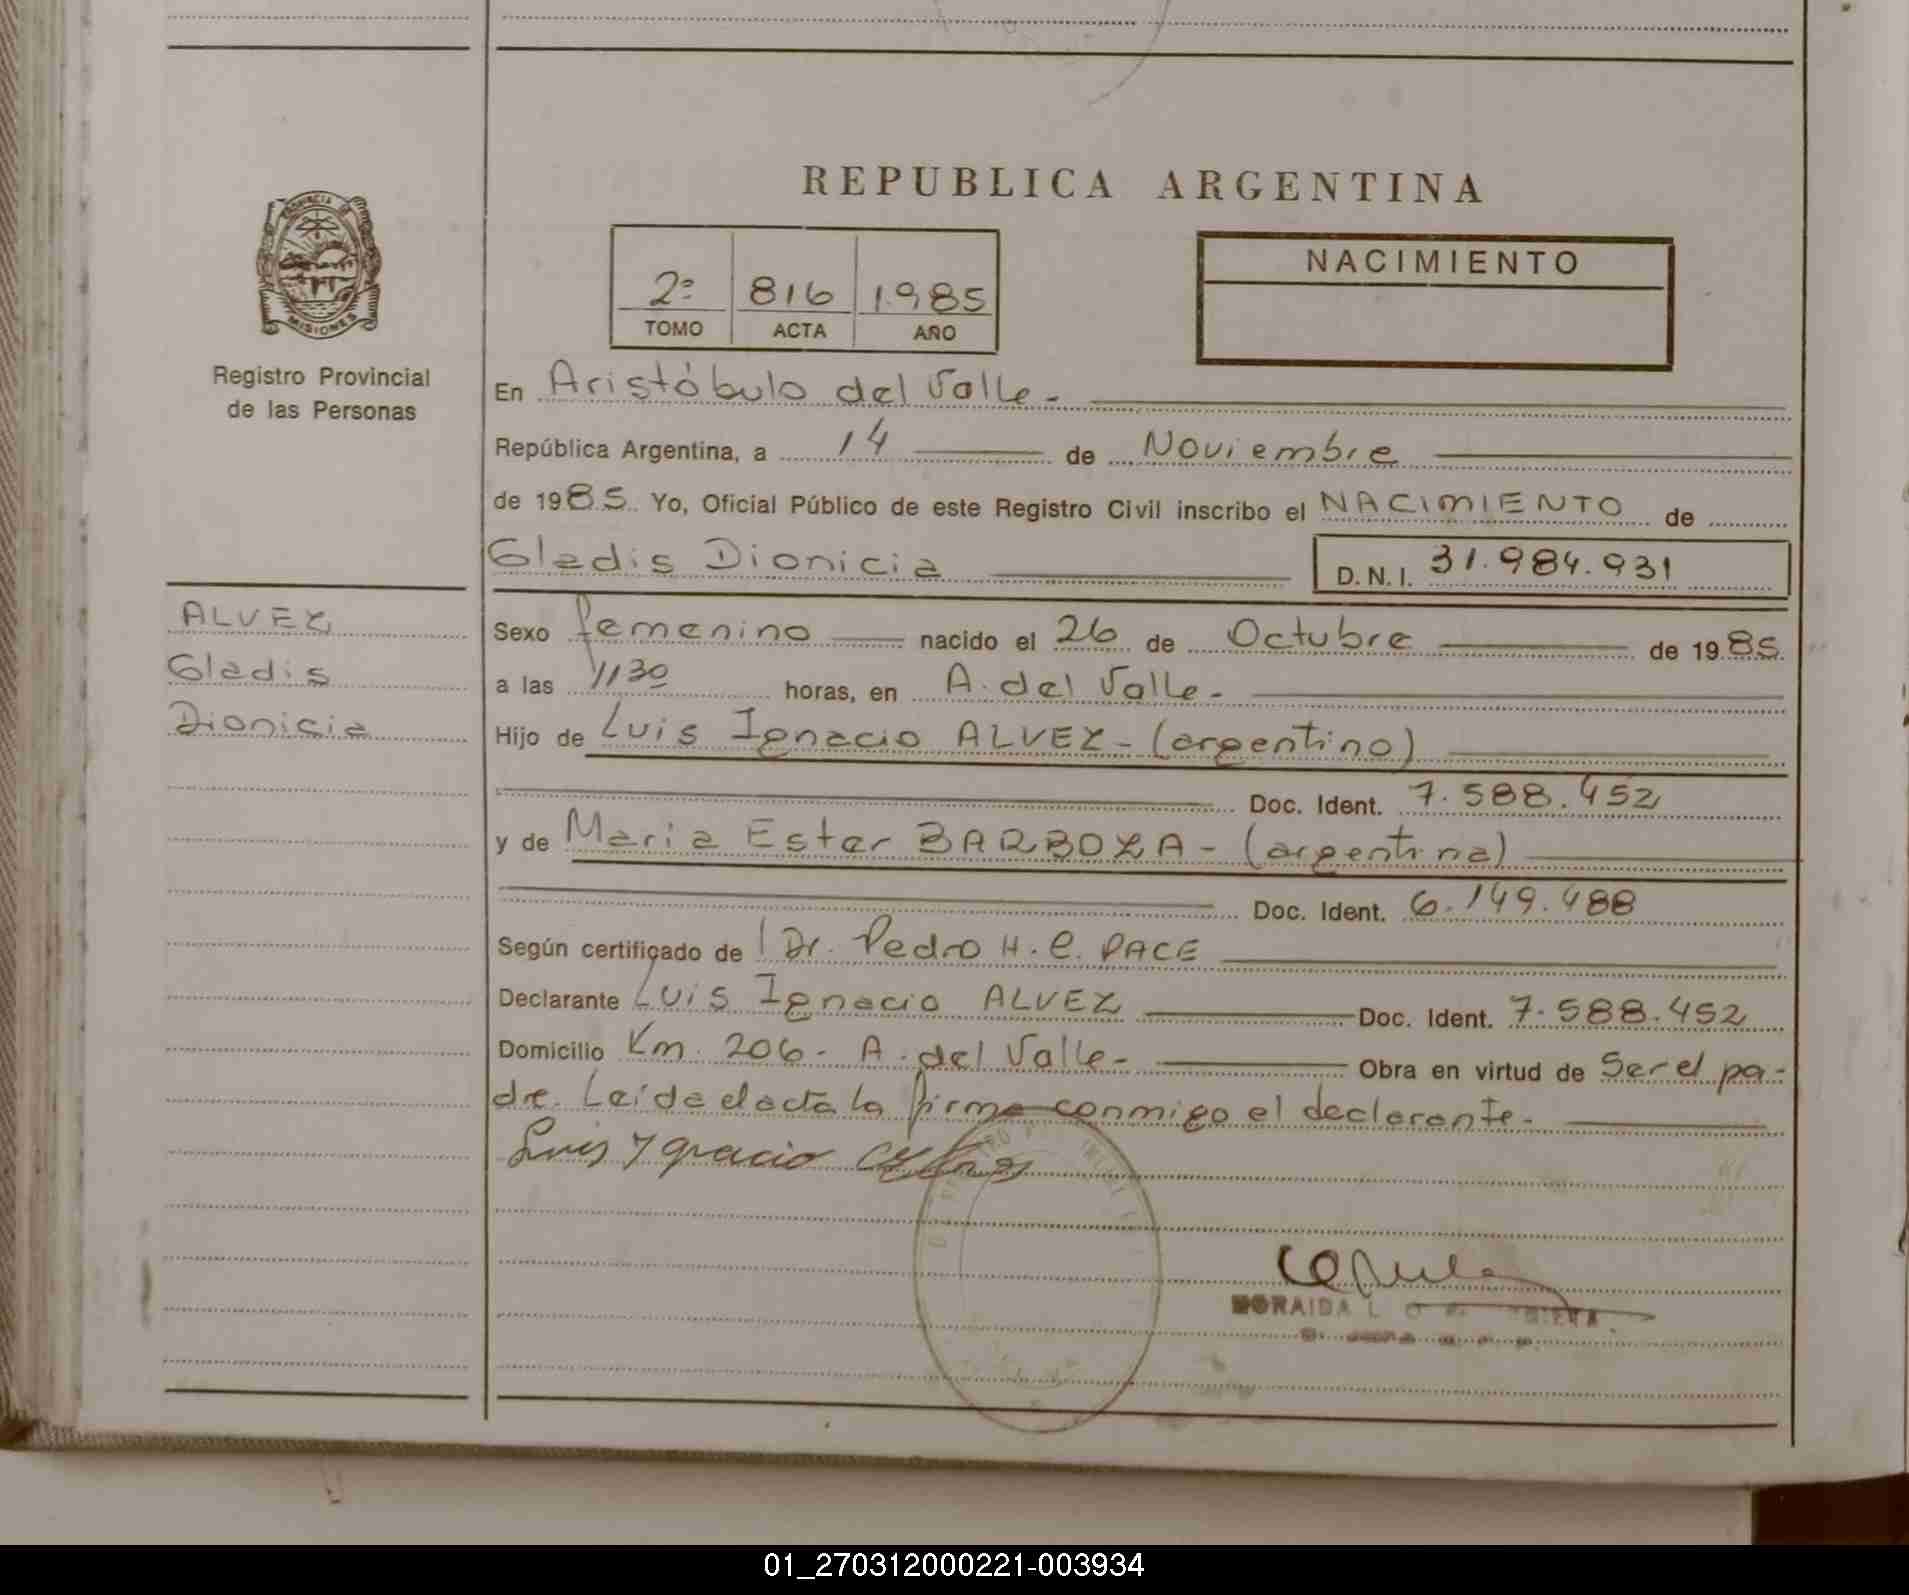 REPUBLICA ARGENTINA
PROVINCIA DE
MISIONES
Registro Provincial
de las Personas
2º 816 1.985
TOMO ACTA AÑO
NACIMIENTO
En Aristóbulo del Valle.-
República Argentina, a 14 de Noviembre
de 1985. Yo, Oficial Público de este Registro Civil inscribo el NACIMIENTO de
Gladis Dionicia D.N.I. 31.984.931
ALVEZ
Gladis
Dionicia
Sexo femenino nacido el 26 de Octubre de 1985.
a las 1130 horas, en A. del Valle.-
Hijo de Luis Ignacio ALVEZ - (argentino)
Doc. Ident. 7.588.452
y de Maria Ester BARBOZA - (argentina)
Doc. Ident. 6.149.488
Según certificado de Dr. Pedro H. C. PACE
Declarante Luis Ignacio ALVEZ Doc. Ident. 7.588.452
Domicilio Km. 206.- A. del Valle.- Obra en virtud de Ser el pa-
dre. Leída el acta la firma conmigo el declarante.-
Luis Ygnacio
MORAIDA L
01_270312000221-003934